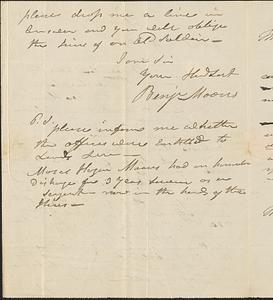 please drop me a line in
answer and you will oblige
the hire of an old Soldier
Your
Benj Mooers
P.S.
please inform me whether
the officers were entitled to
Lands
Moses Hazen Mooers had an
Discharge for 3 years as a
Sergeant now in the hands of the
Heirs